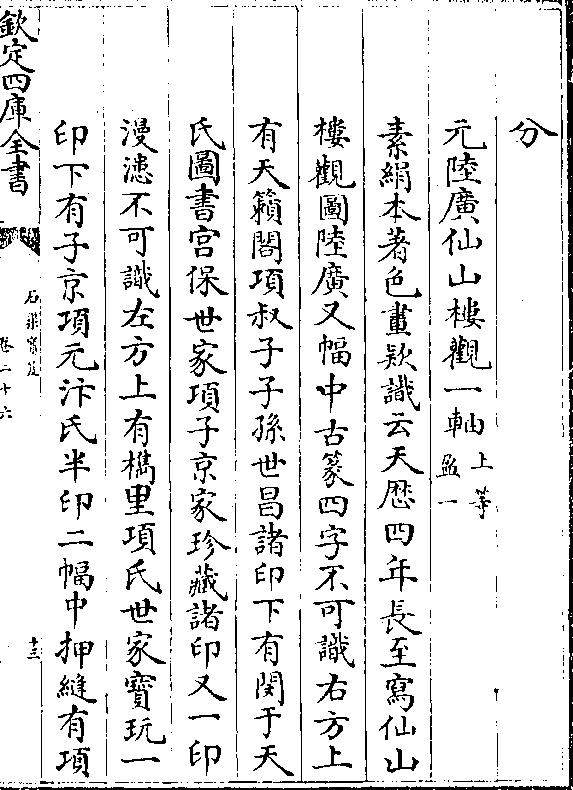 分
元陸廣仙山樓觀一軸上等盈一
素絹本著色畫款識云天厯四年長至寫仙山
樓觀圖陸廣又幅中古篆四字不可識右方上
有天籟閣項叔子子孫世昌諸印下有閔于天
氏圖書宮保世家項子京家珍藏諸印又一印
漫漶不可識左方上有檇里項氏世家寶玩一
印下有子京項元汴氏半印二幅中押縫有項
欽定四庫全書
石渠寶笈
卷二十六
十三